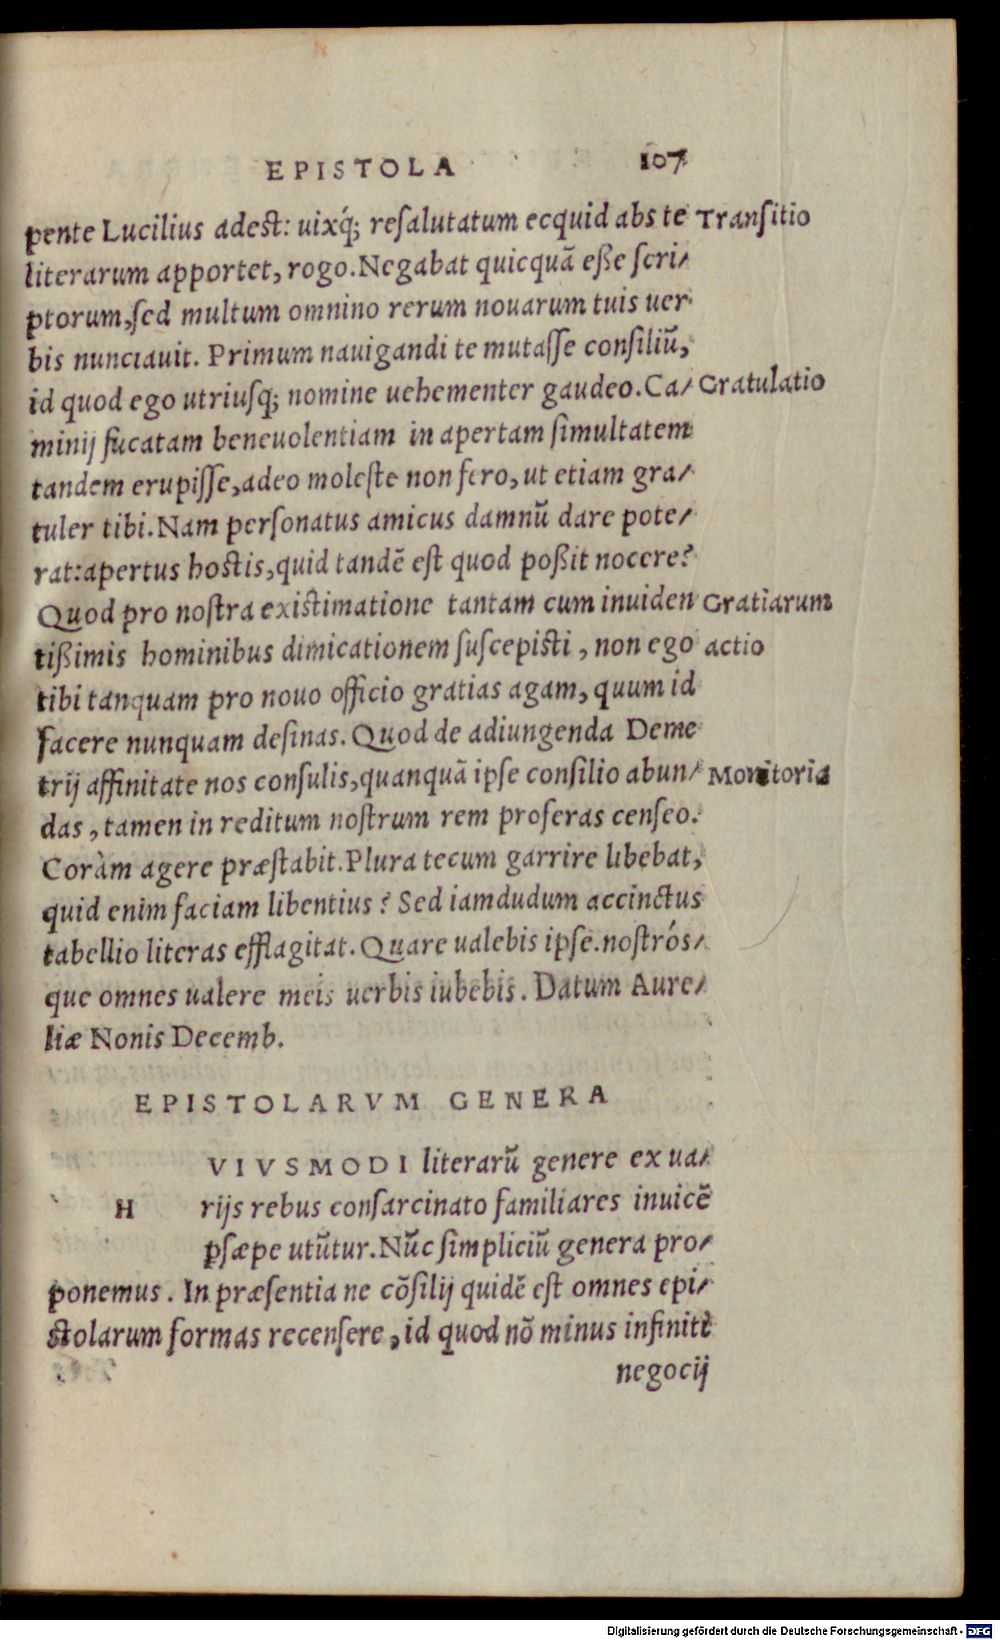 EPISTOLA 107
pente Lucilius adest: uixq́; resalutatum ecquid abs te Transitio
literarum apportet, rogo. Negabat quicquã esse scri/
ptorum, sed multum omnino rerum nouarum tuis uer
bis nunciauit. Primum nauigandi te mutasse consiliũ,
id quod ego utriusq; nomine uehementer gaudeo. Ca/ Gratulatio
minij fucatam beneuolentiam in apertam simultatem
tandem erupisse, adeo moleste non fero, ut etiam gra/
tuler tibi. Nam personatus amicus damnũ dare pote/
rat: apertus hostis, quid tandẽ est quod possit nocere?
Quod pro nostra existimatione tantam cum inuiden Gratiarum
tissimis hominibus dimicationem suscepisti, non ego actio
tibi tanquam pro nouo officio gratias agam, quum id
facere nunquam desinas. Quod de adiungenda Deme
trij affinitate nos consulis, quanquã ipse consilio abun/ Monitoria
das, tamen in reditum nostrum rem proferas censeo.
Coràm agere præstabit. Plura tecum garrire libebat,
quid enim faciam libentius? Sed iamdudum accinctus
tabellio literas efflagitat. Quare ualebis ipse. nostrós/
que omnes ualere meis uerbis iubebis. Datum Aure/
liæ Nonis Decemb.
EPISTOLARVM GENERA
HVIVSMODI literarũ genere ex ua/
rijs rebus consarcinato familiares inuicẽ
psæpe utũtur. Nũc simpliciũ genera pro/
ponemus. In præsentia ne cõsilij quidẽ est omnes epi/
stolarum formas recensere, id quod nõ minus infiniti
negocij
Digitalisierung gefördert durch die Deutsche Forschungsgemeinschaft - DFG